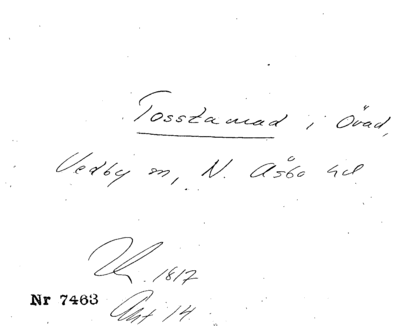 Tosstamad i Övad,
Vedby sn, N. Åsbo hd
1817
Nr 7463
Ant 14